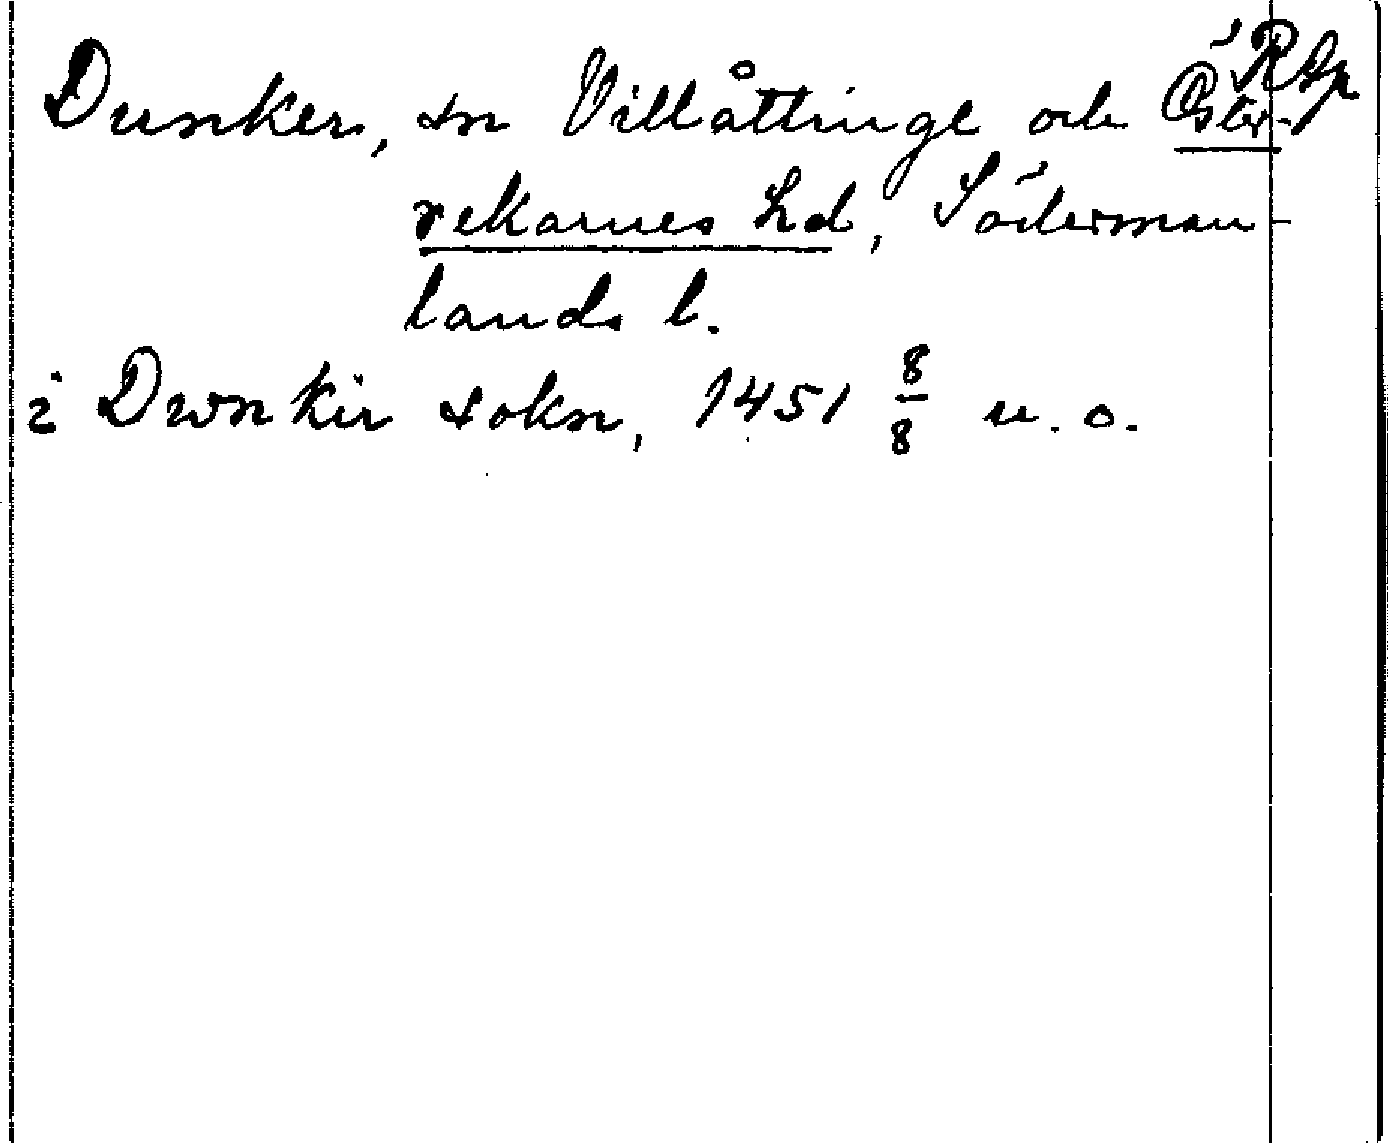 RAp
Dunker, sn Villåttinge och Öster-
rekarnes hd, Söderman-
lands l.
i Dwnkir sokn, 1451 8/8 u. o.